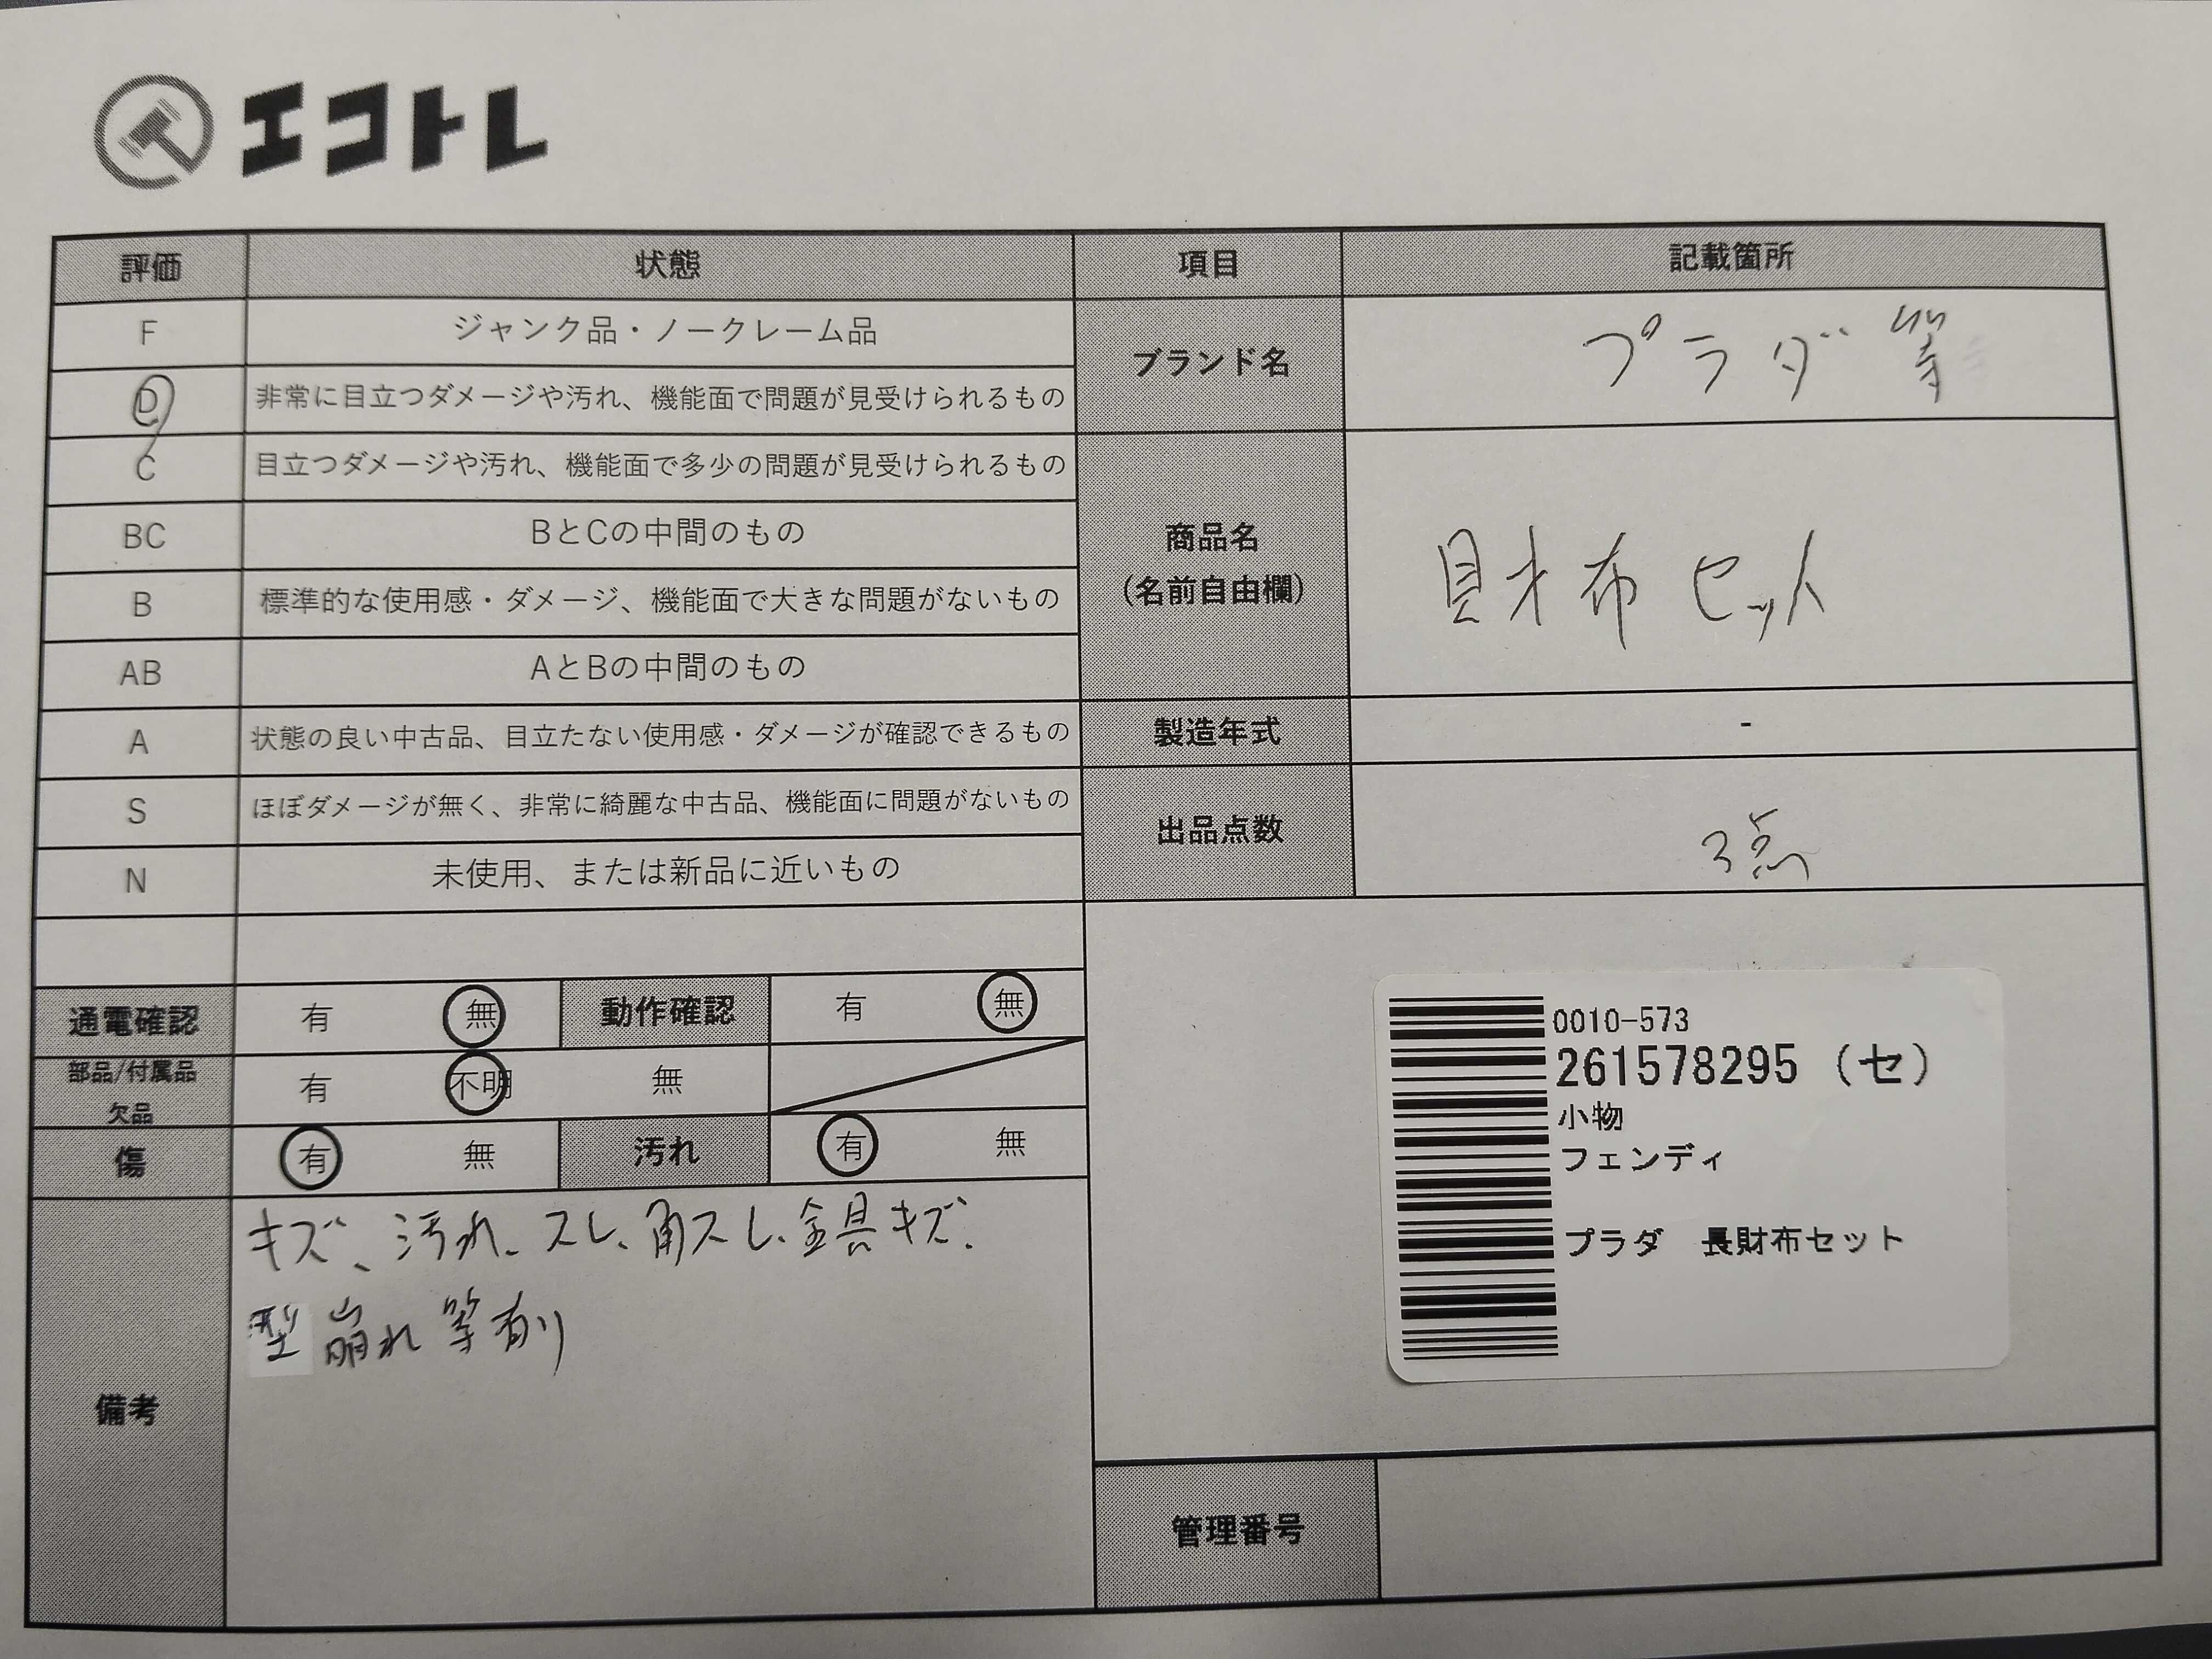 エコトレ
評価 状態 項目 記載箇所
F ジャンク品・ノークレーム品
D 非常に目立つダメージや汚れ、機能面で問題が見受けられるもの
ブランド名 プラダ 等
C 目立つダメージや汚れ、機能面で多少の問題が見受けられるもの
BC BとCの中間のもの
商品名
(名前自由欄)
財布セット
B 標準的な使用感・ダメージ、機能面で大きな問題がないもの
AB AとBの中間のもの
A 状態の良い中古品、目立たない使用感・ダメージが確認できるもの
製造年式 -
S ほぼダメージが無く、非常に綺麗な中古品、機能面に問題がないもの
出品点数 3点
N 未使用、または新品に近いもの
通電確認 有 無 動作確認 有 無
部品/付属品
欠品
有 不明 無
傷 有 無 汚れ 有 無
備考
キズ、汚れ、スレ、角スレ、金具キズ、
型崩れ等有り
0010-573
261578295 (セ)
小物
フェンディ
プラダ 長財布セット
管理番号